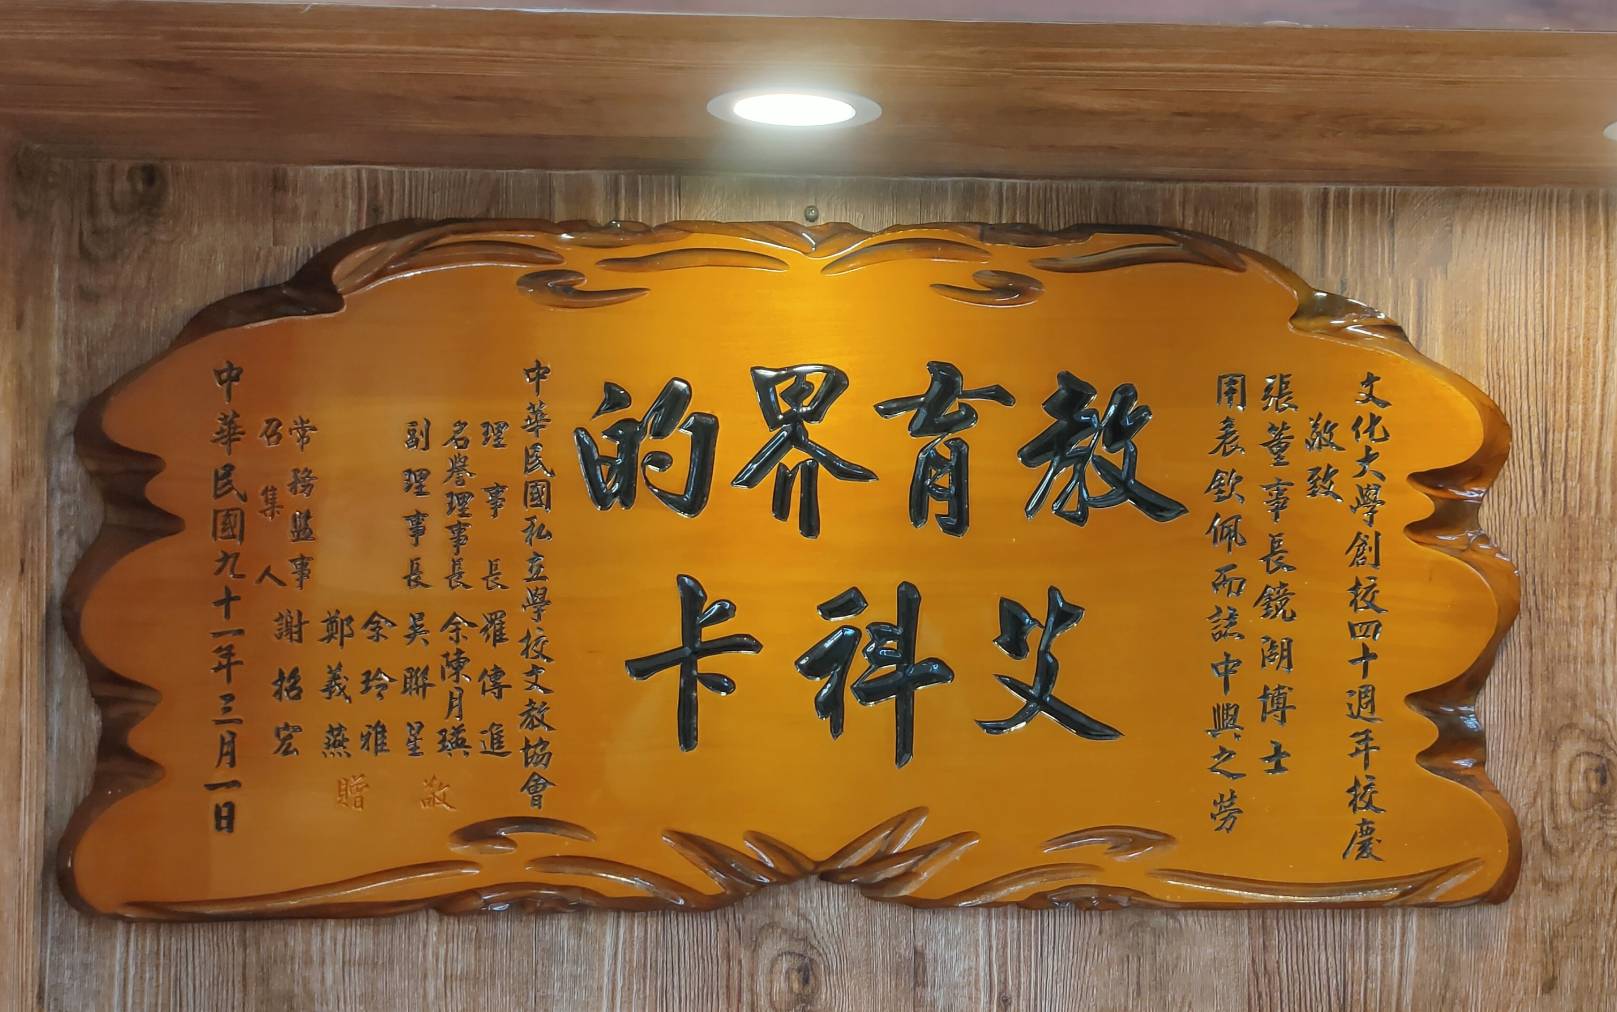 文化大學創校四十週年校慶
敬致
張董事長鏡湖博士
用表欽佩而誌中興之勞
教育界的
艾科卡
中華民國私立學校文教協會
理事長 羅傳進
名譽理事長 余陳月瑛
副理事長 吳聯星
余玲雅
鄭義燕
敬贈
常務監事
召集人 謝招宏
中華民國九十一年三月一日